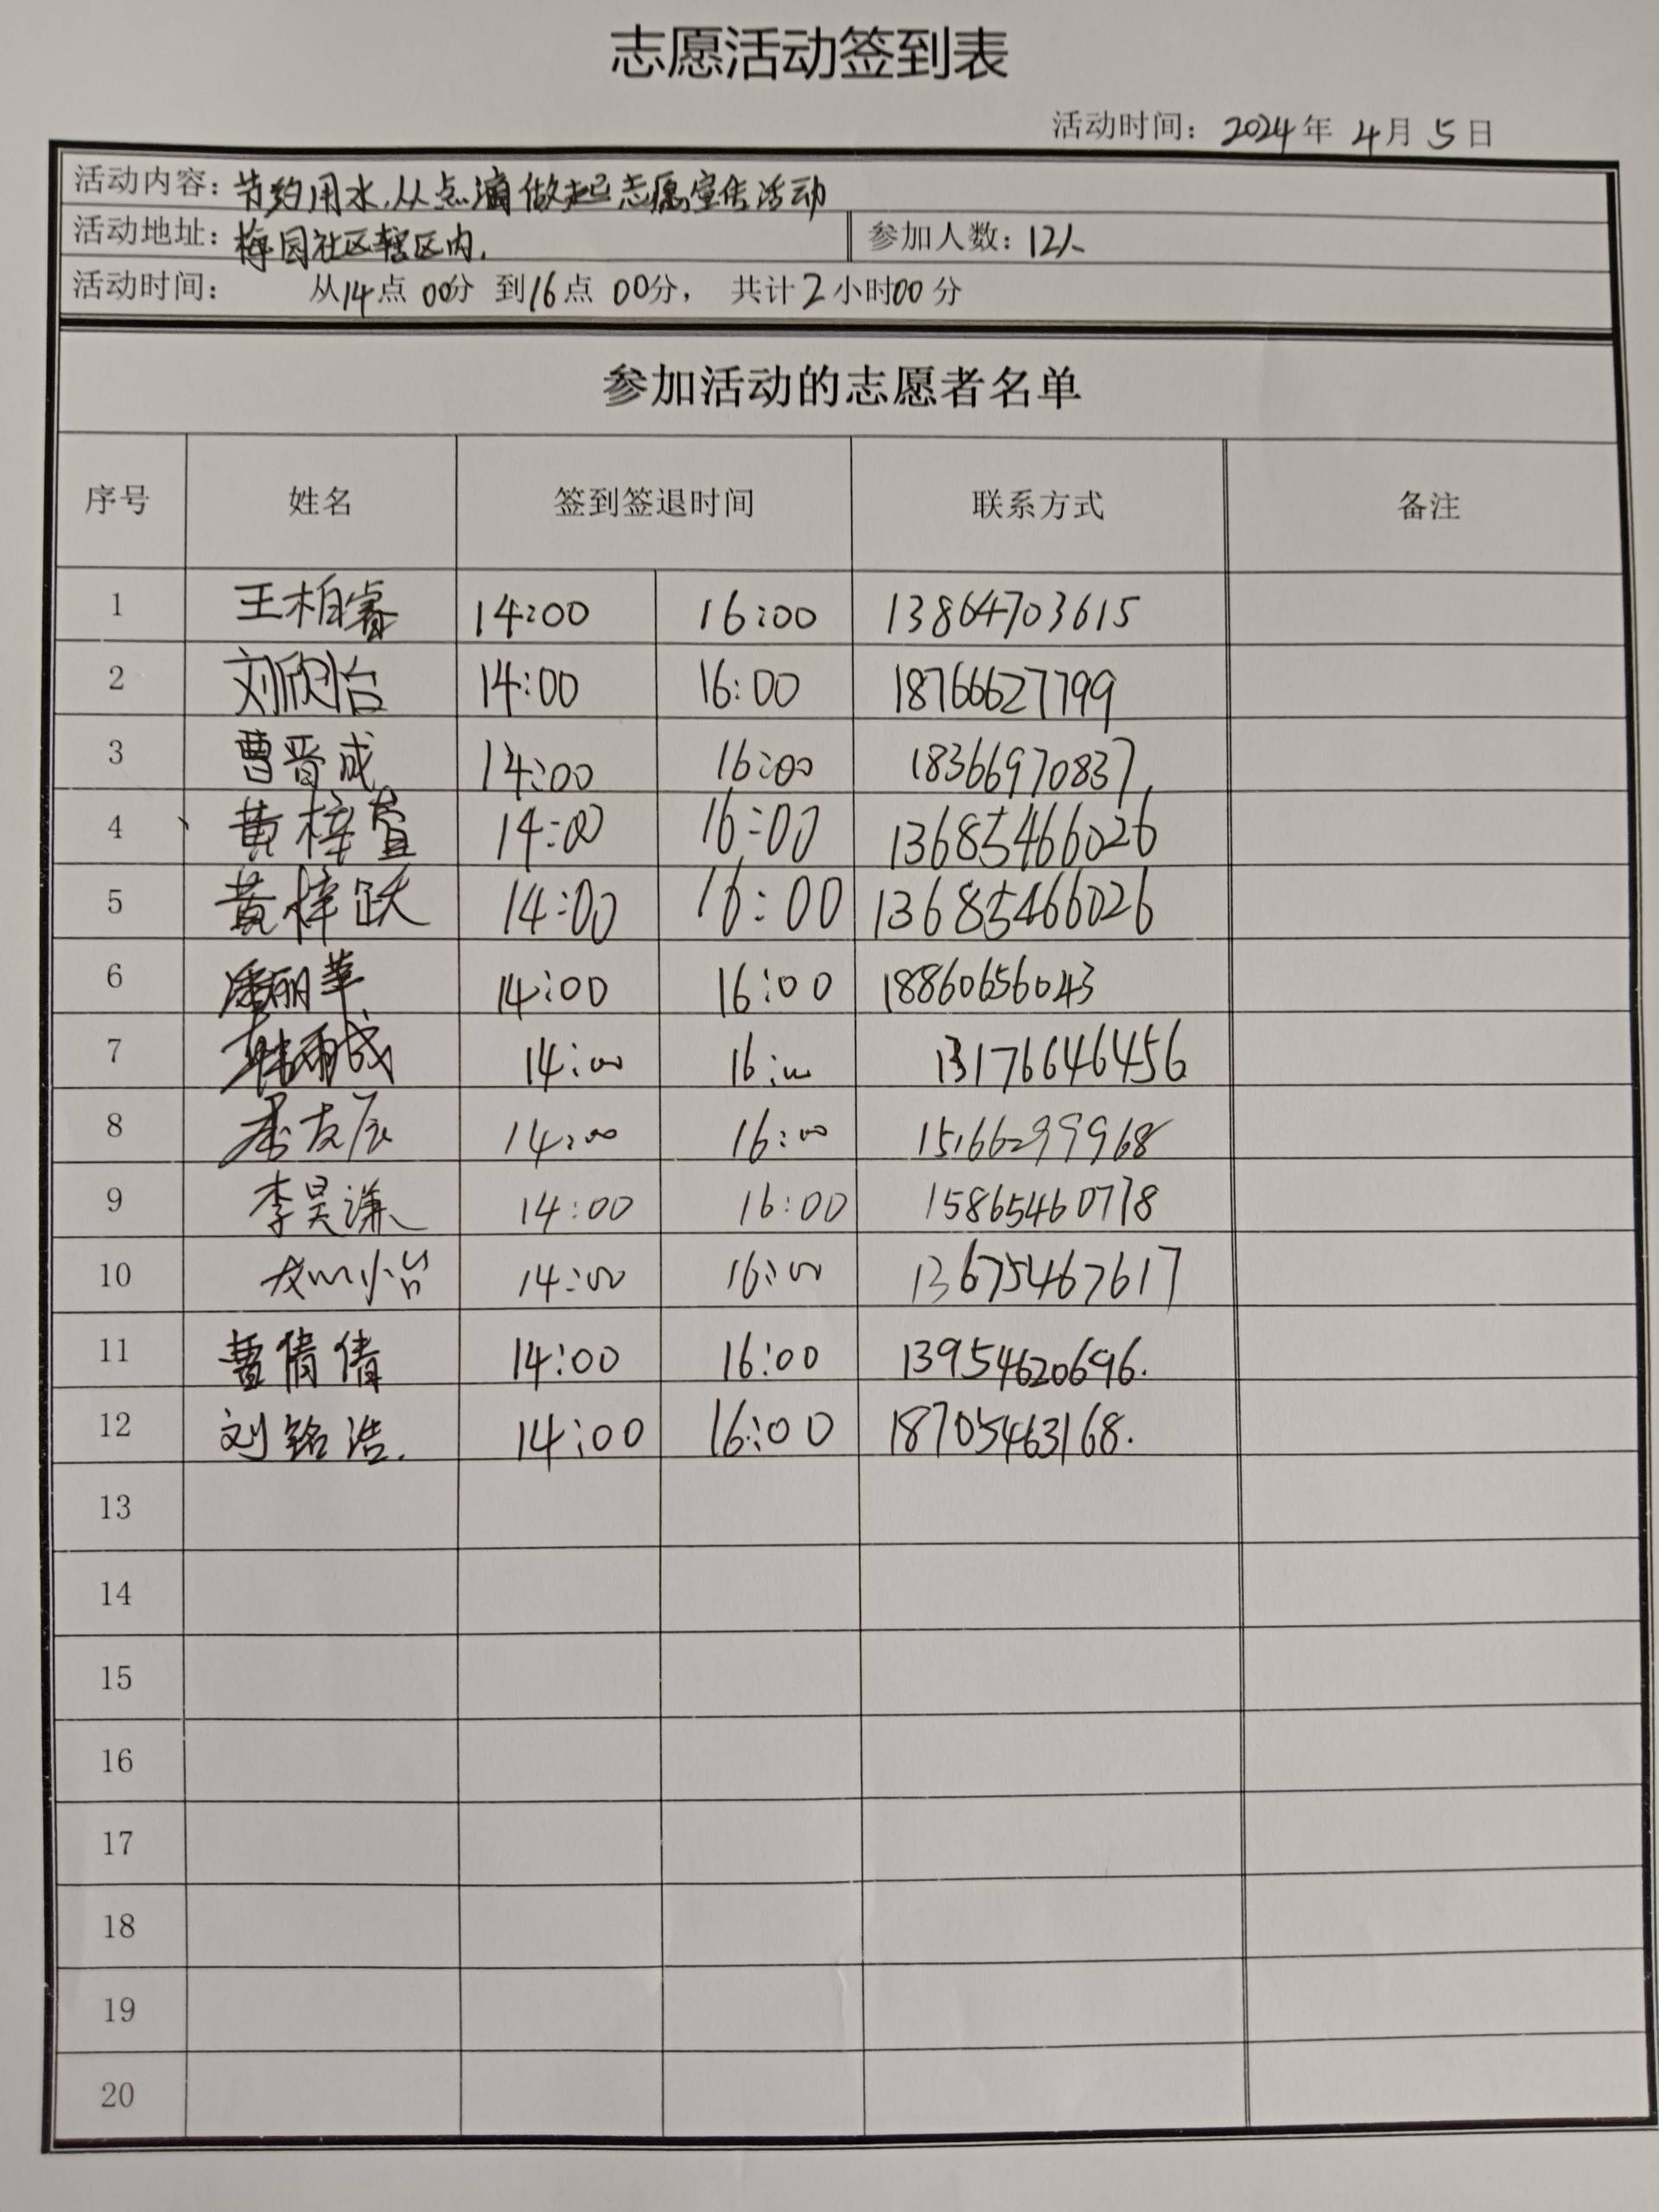 志愿活动签到表
活动时间：2024年 4月 5日
活动内容：节约用水，从点滴做起志愿宣传活动
活动地址：梅园社区辖区内. 参加人数：12人
活动时间： 从14点 00分 到16点 00分， 共计2小时00分
参加活动的志愿者名单
序号 姓名 签到签退时间 联系方式 备注
1 王柏睿 14:00 16:00 13864703615
2 刘欣怡 14:00 16:00 18766627799
3 曹晋成 14:00 16:00 18366970837
4 黄梓萱 14:00 16:00 13685466026
5 黄梓跃 14:00 16:00 13685466026
6 潘丽华 14:00 16:00 18860656043
7 韩雨成 14:00 16:00 13176646456
8 友辰 14:00 16:00 15166299968
9 李昊谦 14:00 16:00 15865460778
10 14:00 16:00 13675467617
11 曹倩倩 14:00 16:00 13954620696.
12 刘铭浩. 14:00 16:00 18705463168.
13
14
15
16
17
18
19
20